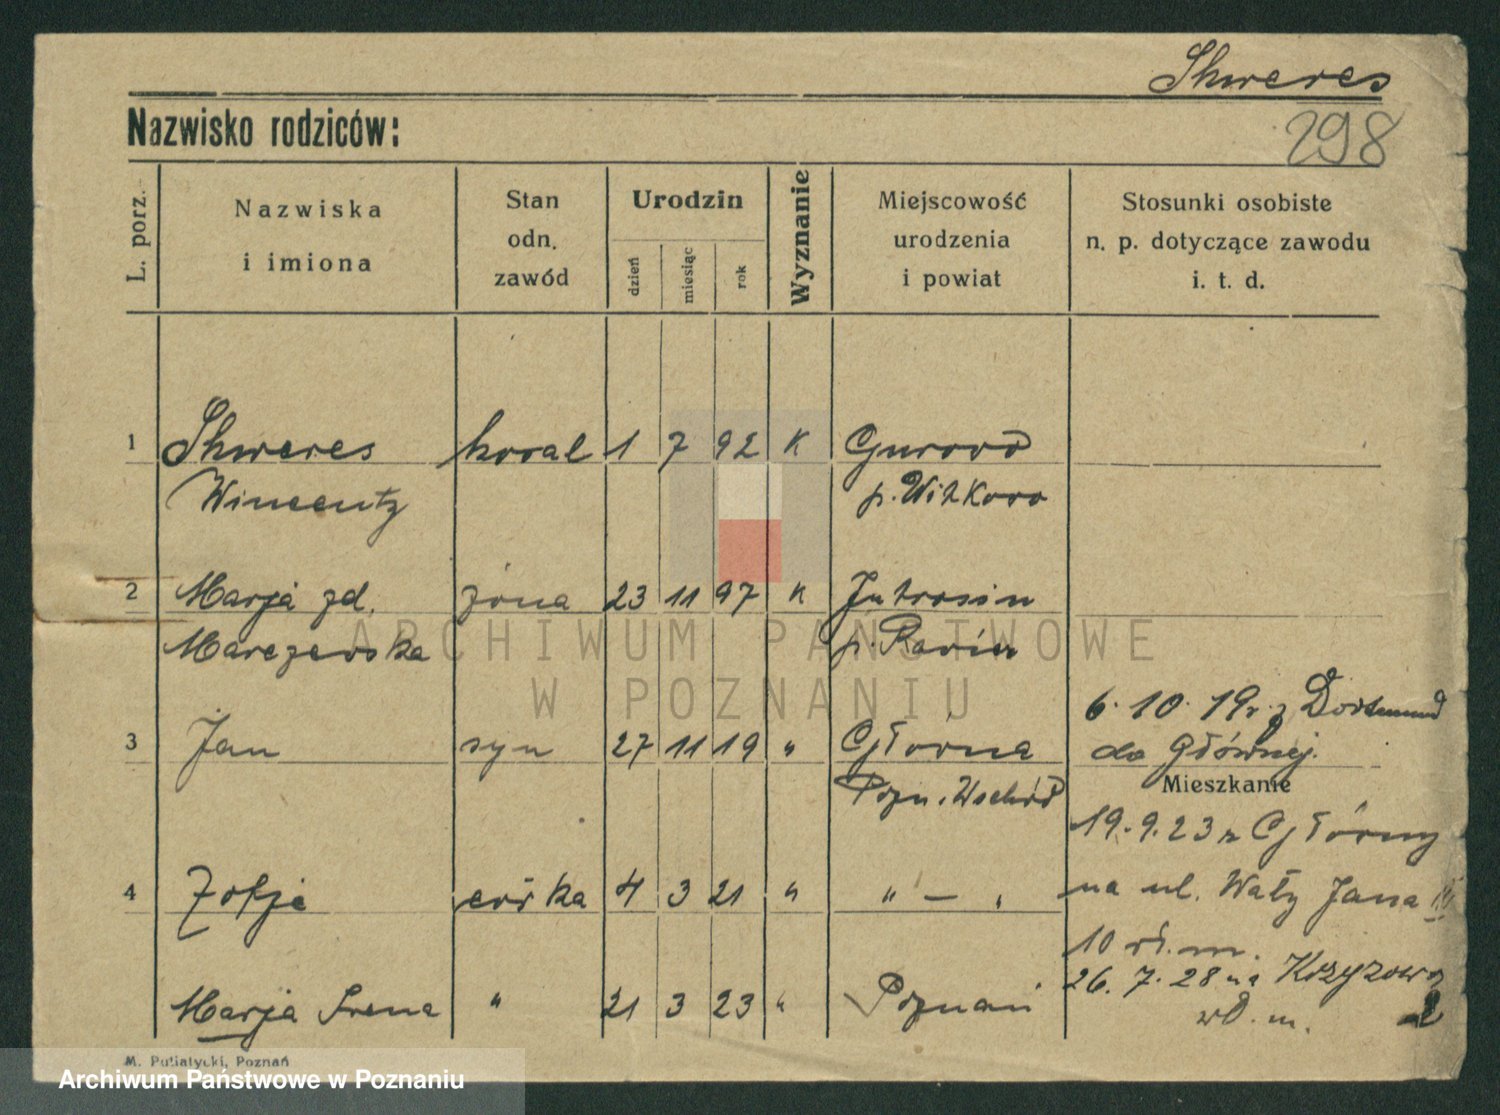 Skweres
Nazwisko rodziców:
298
L. porz.
Nazwiska
i imiona
Stan
odn.
zawód
Urodzin
dzień
miesiąc
rok
Wyznanie
Miejscowość
urodzenia
i powiat
Stosunki osobiste
n. p. dotyczące zawodu
i. t. d.
1 Skweres kowal 1 7 92 K Gurowo
Wincenty p. Witkowo
2 Marja zd. żona 23 11 97 K Jutrosin
Marczewska p. Rawicz
6. 10. 19 r. z Dortmund
3 Jan syn 27 11 19 " Główna do Głównej.
Pozn. Wschód Mieszkanie
19. 9. 23 z Główny
4 Zofja córka 4 3 21 " " — " na ul. Wały Jana III
10 wł. m.
26. 7. 28 na Krzyżowa
Marja Irena " 21 3 23 " Poznań wł. m. 2
M. Putiatycki, Poznań
ARCHIWUM PAŃSTWOWE
W POZNANIU
Archiwum Państwowe w Poznaniu